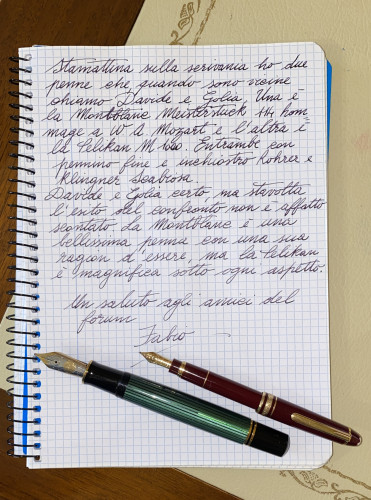 Stamattina sulla scrivania ho due
penne che quando sono vicine
chiamo Davide e Golia. Una è
la Montblanc Meisterstuck 114 hom
mage a W A Mozart e l'altra è
la Pelikan M 1000. Entrambe con
pennino fine e inchiostro Rohrer e
Klingner Scabrosa.
Davide e Golia certo, ma stavolta
l'esito del confronto non è affatto
scontato. La Montblanc è una
bellissima penna con una sua
ragion d'essere, ma la Pelikan
è magnifica sotto ogni aspetto.
Un saluto agli amici del
forum
Fabio